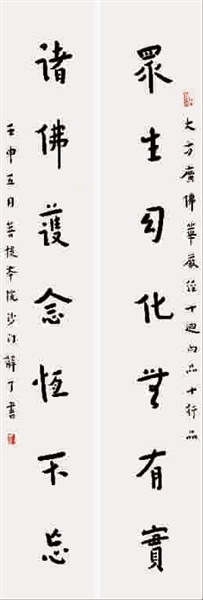 大方廣佛華嚴經十迴向品十行品
眾生幻化無有實
諸佛護念恆不忘
壬申五月菩提本院沙門書